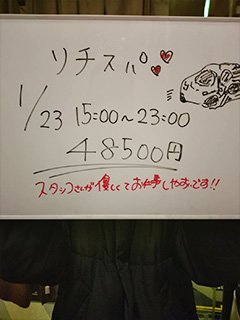 リチスパ
1/23 15:00～23:00
48500円
スタッフさんが優しくてお仕事しやすいです!!